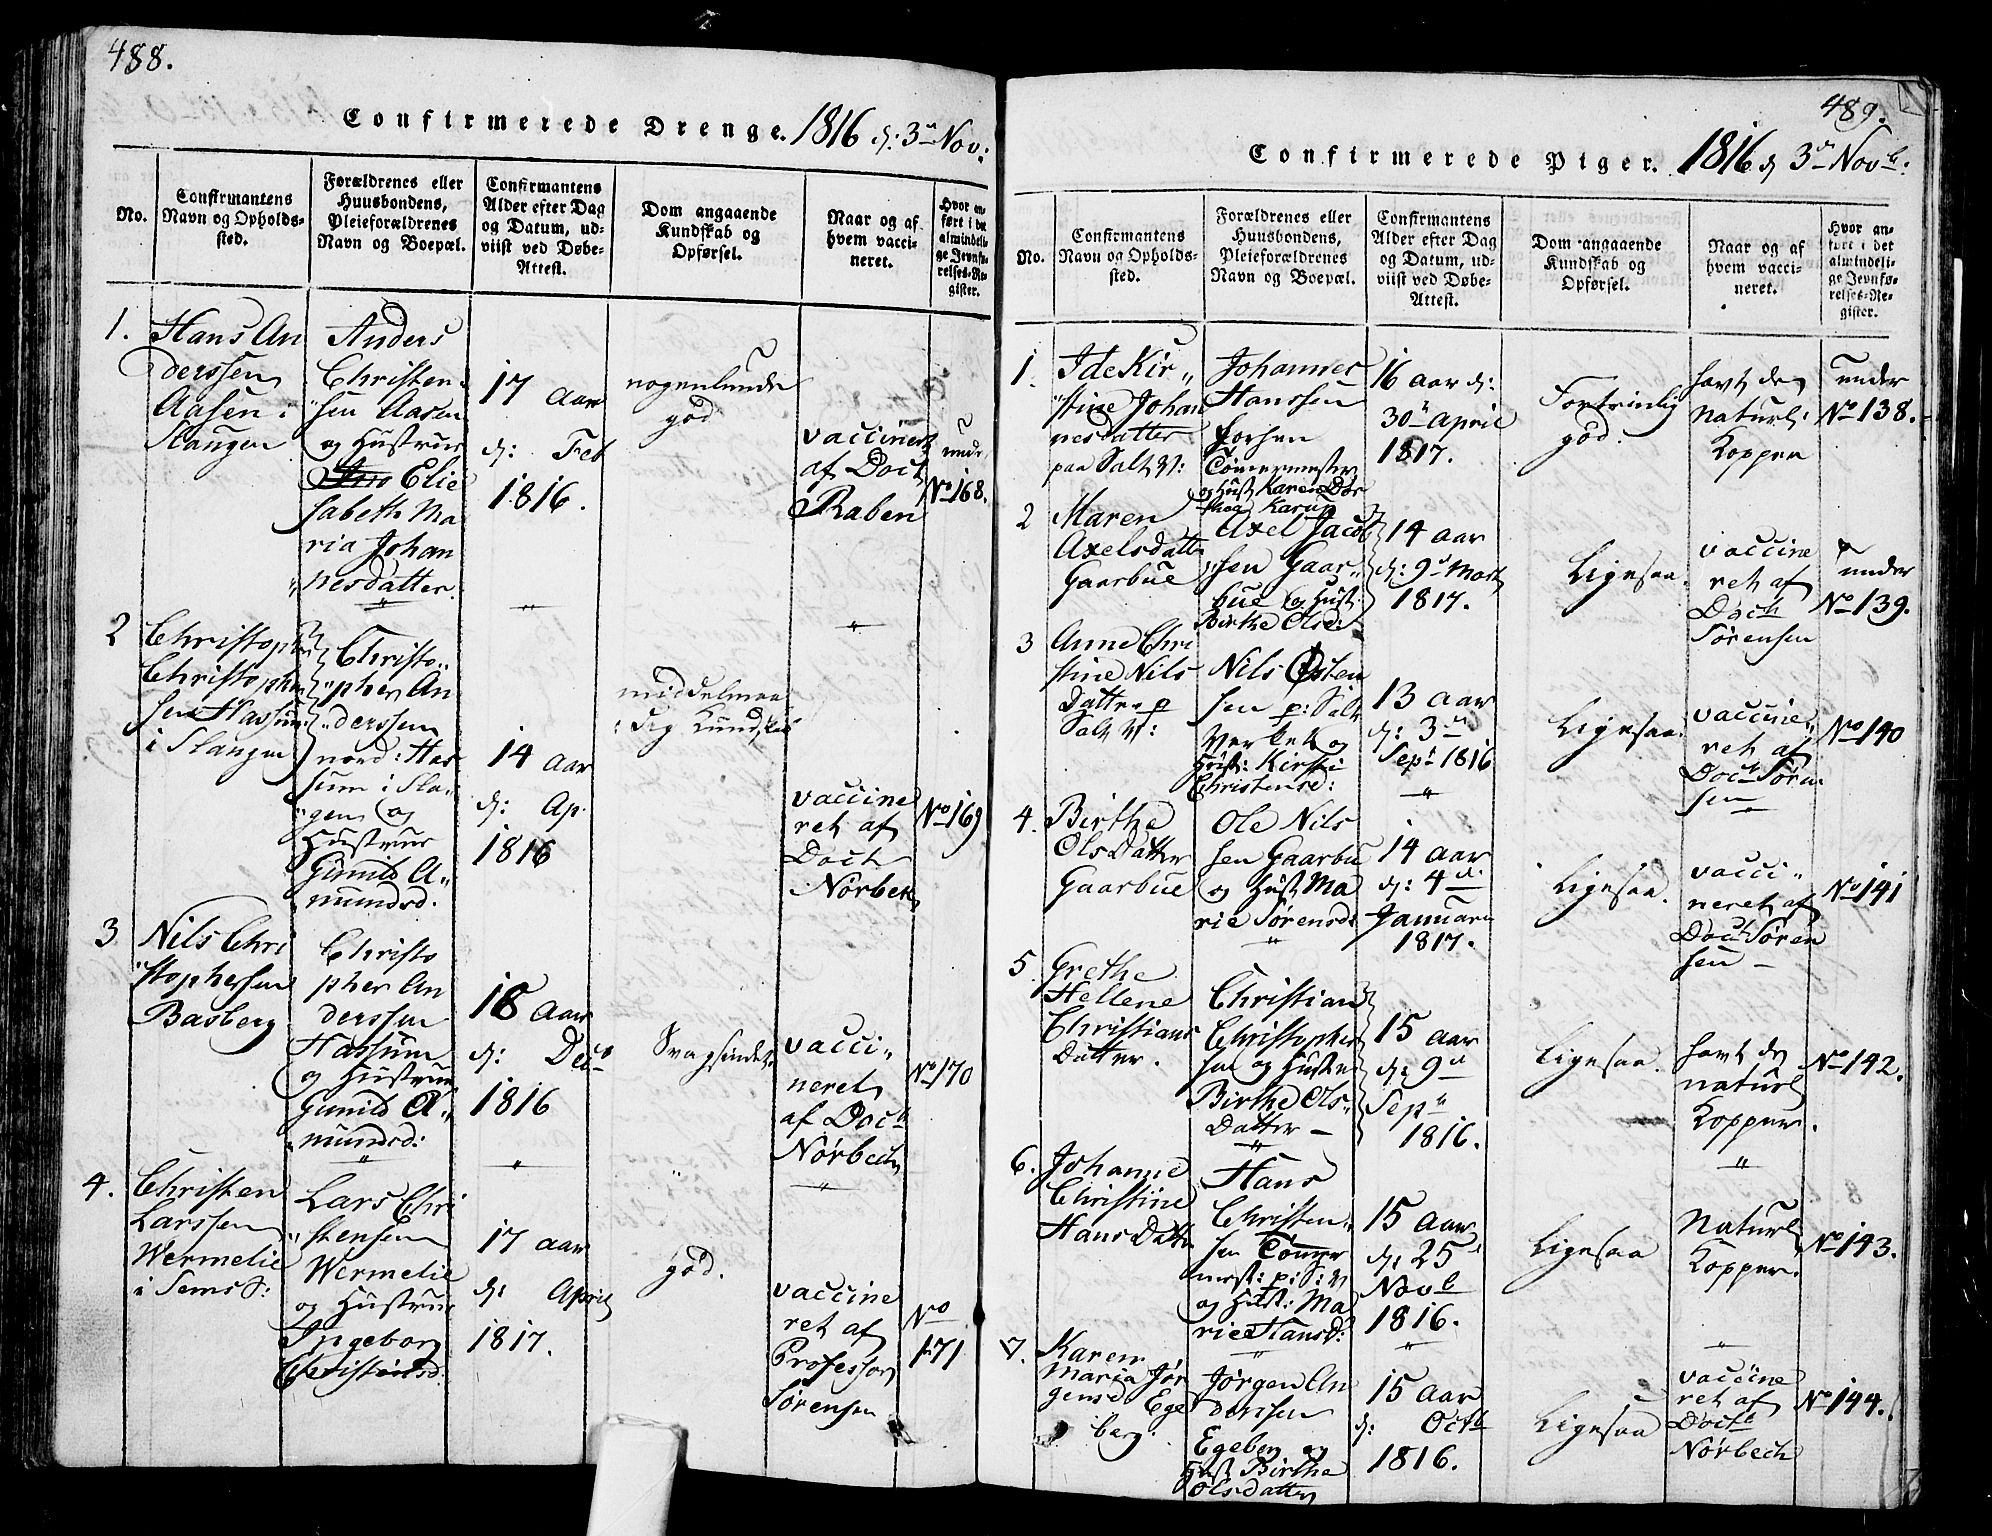 488.
Confirmerede Drenge. 1816 d: 3die Nov:
No.
Confirmantens
Navn og Opholds-
sted.
Forældrenes eller
Huusbondens,
Pleieforældrenes
Navn og Boepæl.
Confirmantens
Alder efter Dag
og Datum, ud-
viist ved Døbe-
Attest.
Dom angaaende
Kundskab og
Opførsel.
Naar og af
hvem vacci-
neret.
Hvor an-
ført i det
almindeli-
ge Jevnfø-
relses-Re-
gister.
1.
Hans An
derssen
Aasen i
Slangen
Anders
Christen-
sen Aasen
og Hustrue
Elie
sabeth Ma
ria Johan
nesdatter.
17 Aar
d: Feb
1816.
nogenlunde
god
vaccineret
af Doct
Raben
under
No 168.
2
Christopher
Christophers
sen Hassum
i Slangen
Christo„
„pher An
„derssen
nord: Has
sum i Sla„
„gen og
Hustrue
Gunild A„
mundsd.
14 Aar
d: Ap.
1816
middelmaa
dig Kundskab
vaccine
ret af
Doct
Nørbech
No 169
3
Nils Chri
„stophersen
Basberg
Christo
pher An
derssen
Hassum
og Hustrue
Gunild A„
mundsd:
18 Aar
d: Dec
1816
Svagsindet
vacci„
neret
af Doct
Nørbech
No 170
4.
Christen
Larssen
Wermelie
i Sems S:
Lars Chri
„stensen
Wermelie
og Hustrue
Ingeborg
Christensd.
17 Aar
d: April
1817.
god.
vaccine
ret af
Professor
Sørensen
No
171
489.
Confirmerede Piger. 1816 d 3die Novb:
No.
Confirmantens
Navn og Opholds-
sted.
Forældrenes eller
Huusbondens,
Pleieforældrenes
Navn og Boepæl.
Confirmantens
Alder efter Dag
og Datum, ud-
viist ved Døbe-
Attest.
Dom angaaende
Kundskab og
Opførsel.
Naar og af
hvem vacci-
neret.
Hvor an-
ført i det
almindeli-
ge Jevnfø-
relses-Re-
gister.
1.
Ide Kir„
„stine Johan
nesdatter
paa Salt V:
Johannes
Hanssen
Tømermester
og Hust Karen Dor
thea Karup
16 Aar d:
30te April
1817.
Fortrinlig
god.
havt de
naturl:
Kopper
under
No 138.
2
Maren
Axelsdatter
Gaarbue
Axel Jacob
„sen Gaar„
bue og Hust.
Birthe Olsd:
14 Aar
d: 9de Mart
1817.
Ligesaa.
vaccine
ret af
Doct
Sørensen
under
No 139.
3
Anne Chri
stine Nils
Datter p
Salt V:
Nils Østen
sen p: Salt
Verket og
Hust: Kirsti
Christensd:
13 Aar
d: 3die
Sept 1816
Ligesaa.
vaccine„
ret af
Doct Søren
sen
No 140
4.
Birthe
Ols Datter
Gaarbue
Ole Nils
sen Gaarbu
og Hust Ma
rie Sørensd:
14 Aar
d: 4de
Januari
1817.
Ligesaa.
vacci„
neret af
Doct Søren
sen
No 141
5.
Grethe
Hellene
Christians
Datter.
Christian
Christopher
sen og Hustr
Birthe Ols„
Datter
15 Aar
d: 9de
Sept
1816.
Ligesaa.
havt de
naturl
Kopper.
No 142.
6.
Johanne
Christine
Hans Datter
Hans
Christen„
sen Tømer
mest: p: S: V
og Hust: Ma
rie Hansd:
15 Aar
d: 25
Novb
1816.
Ligesaa
Naturl
Kopper.
No 143.
7.
Karen
Maria Jør
gensd Ege
berg.
Jørgen An
derssen
Egeberg og
Hust Birthe
Olsdatter
15 Aar
d: Octb
1816.
Ligesaa
vaccine
ret af
Doct
Nørbech
No 144.